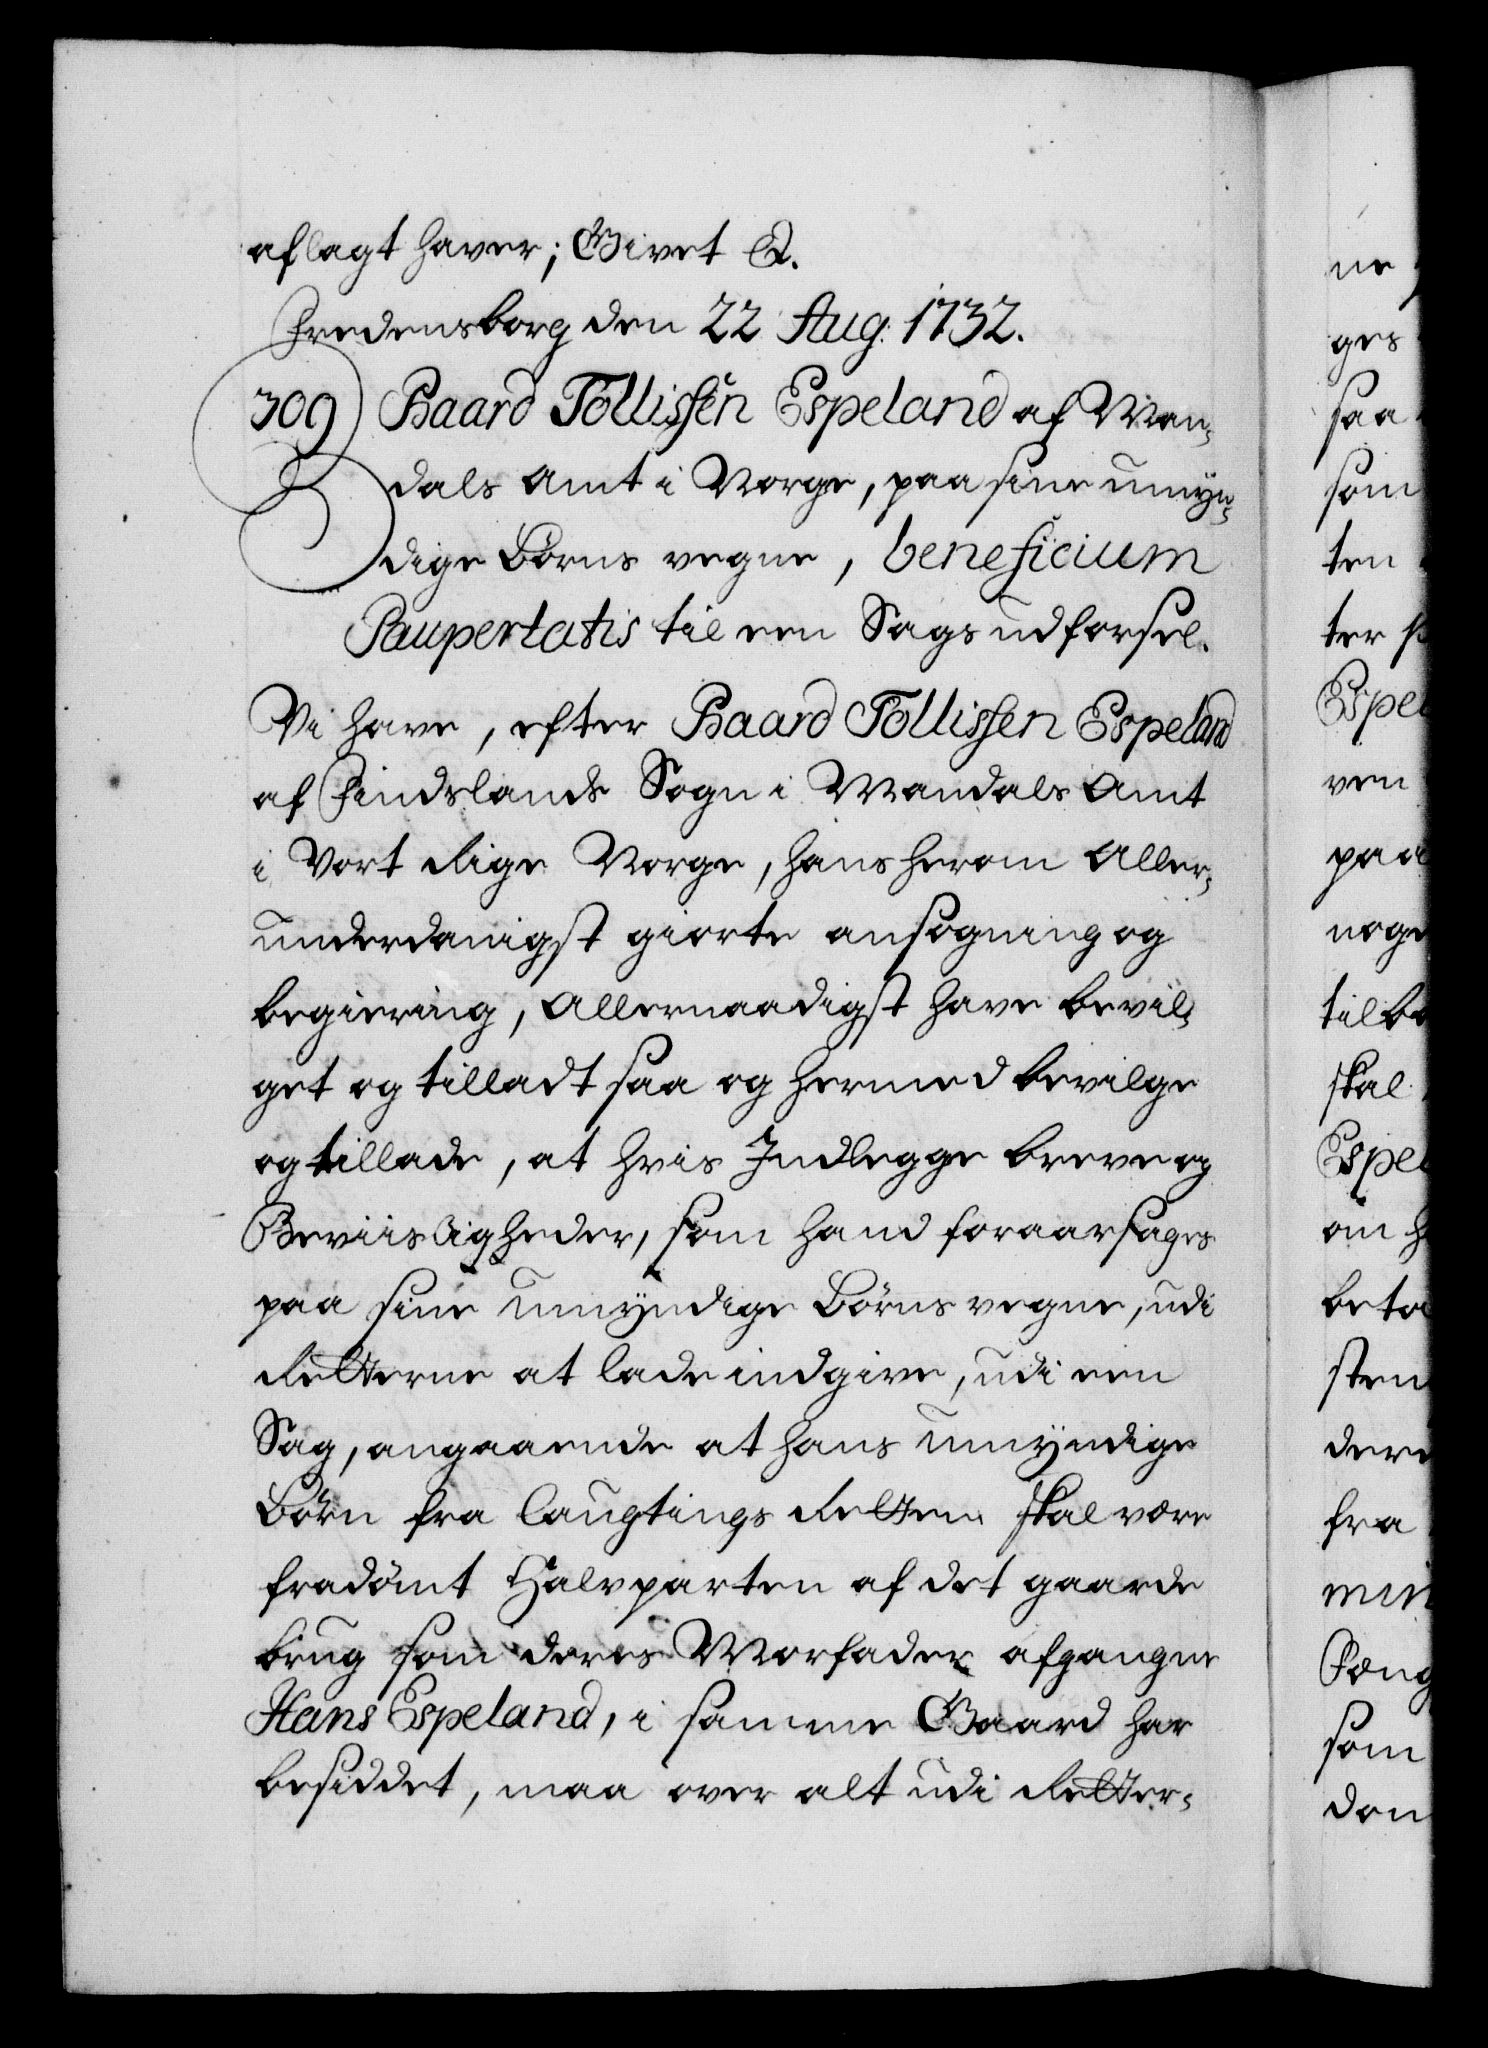 aflagt haver; Givet &.
Fredensborg den 22 Aug: 1732.
309 Baard Tollisſen Espeland af Man-
dals Amt i Norge, paa sine umyn-
dige Börns vegne, beneficium
Paupertatis til een Sags udförsel.
Vi have, efter Baard Tollisſen Espeland
af Findslands Sogn i Mandals Amt
i Vort Rige Norge, hans herom Aller-
underdanigst giorte ansögning og
begiering, Allernaadigst have bevil-
get og tilladt saa og hermed bevilge
og tillade, at hvis Indlegge breve og
Beviisligheder, som hand foraarsages
paa sine umyndige Börns vegne, udi
Retterne at lade indgive, udi een
Sag, angaaende at hans umyndige
Börn fra Laugtings Retten skal være
fradömt Halvparten af det gaarde
brug som deres Morfader afgangne
Hans Espeland, i samme Gaard har
besiddet, maa over alt udi Retter-
ne
ges
saa
som
ten
ter
Espel
ven
paa
noge
tilbe
skal
Espel
om
beta
sten
dere
fra
min
Fæng
som
den